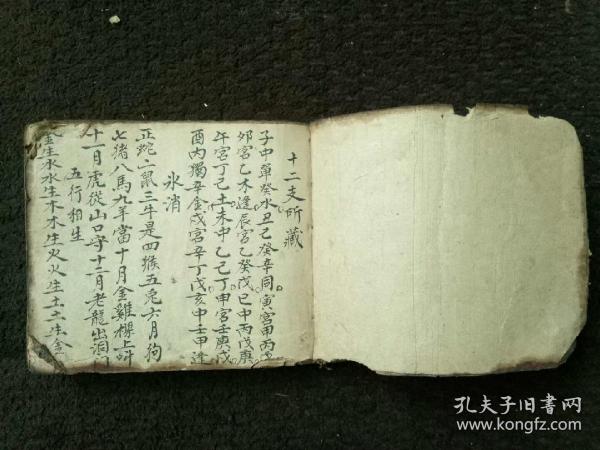 十二支所藏
子中單癸水丑己癸辛同寅宮甲丙戊
卯宮乙木逢辰宮乙癸戊巳中丙戊庚
午宮丁己土未中乙己丁申宮壬庚戊
酉內獨辛金戌宮辛丁戊亥中壬甲逢
氷消
正蛇二鼠三牛是四猴五兎六月狗
七猪八馬九羊當十月金雞樑上叫
十一月虎從山口守十二月老龍出洞
五行相生
金生水水生木木生火火生土土生金
孔夫子旧书网
www.kongfz.com